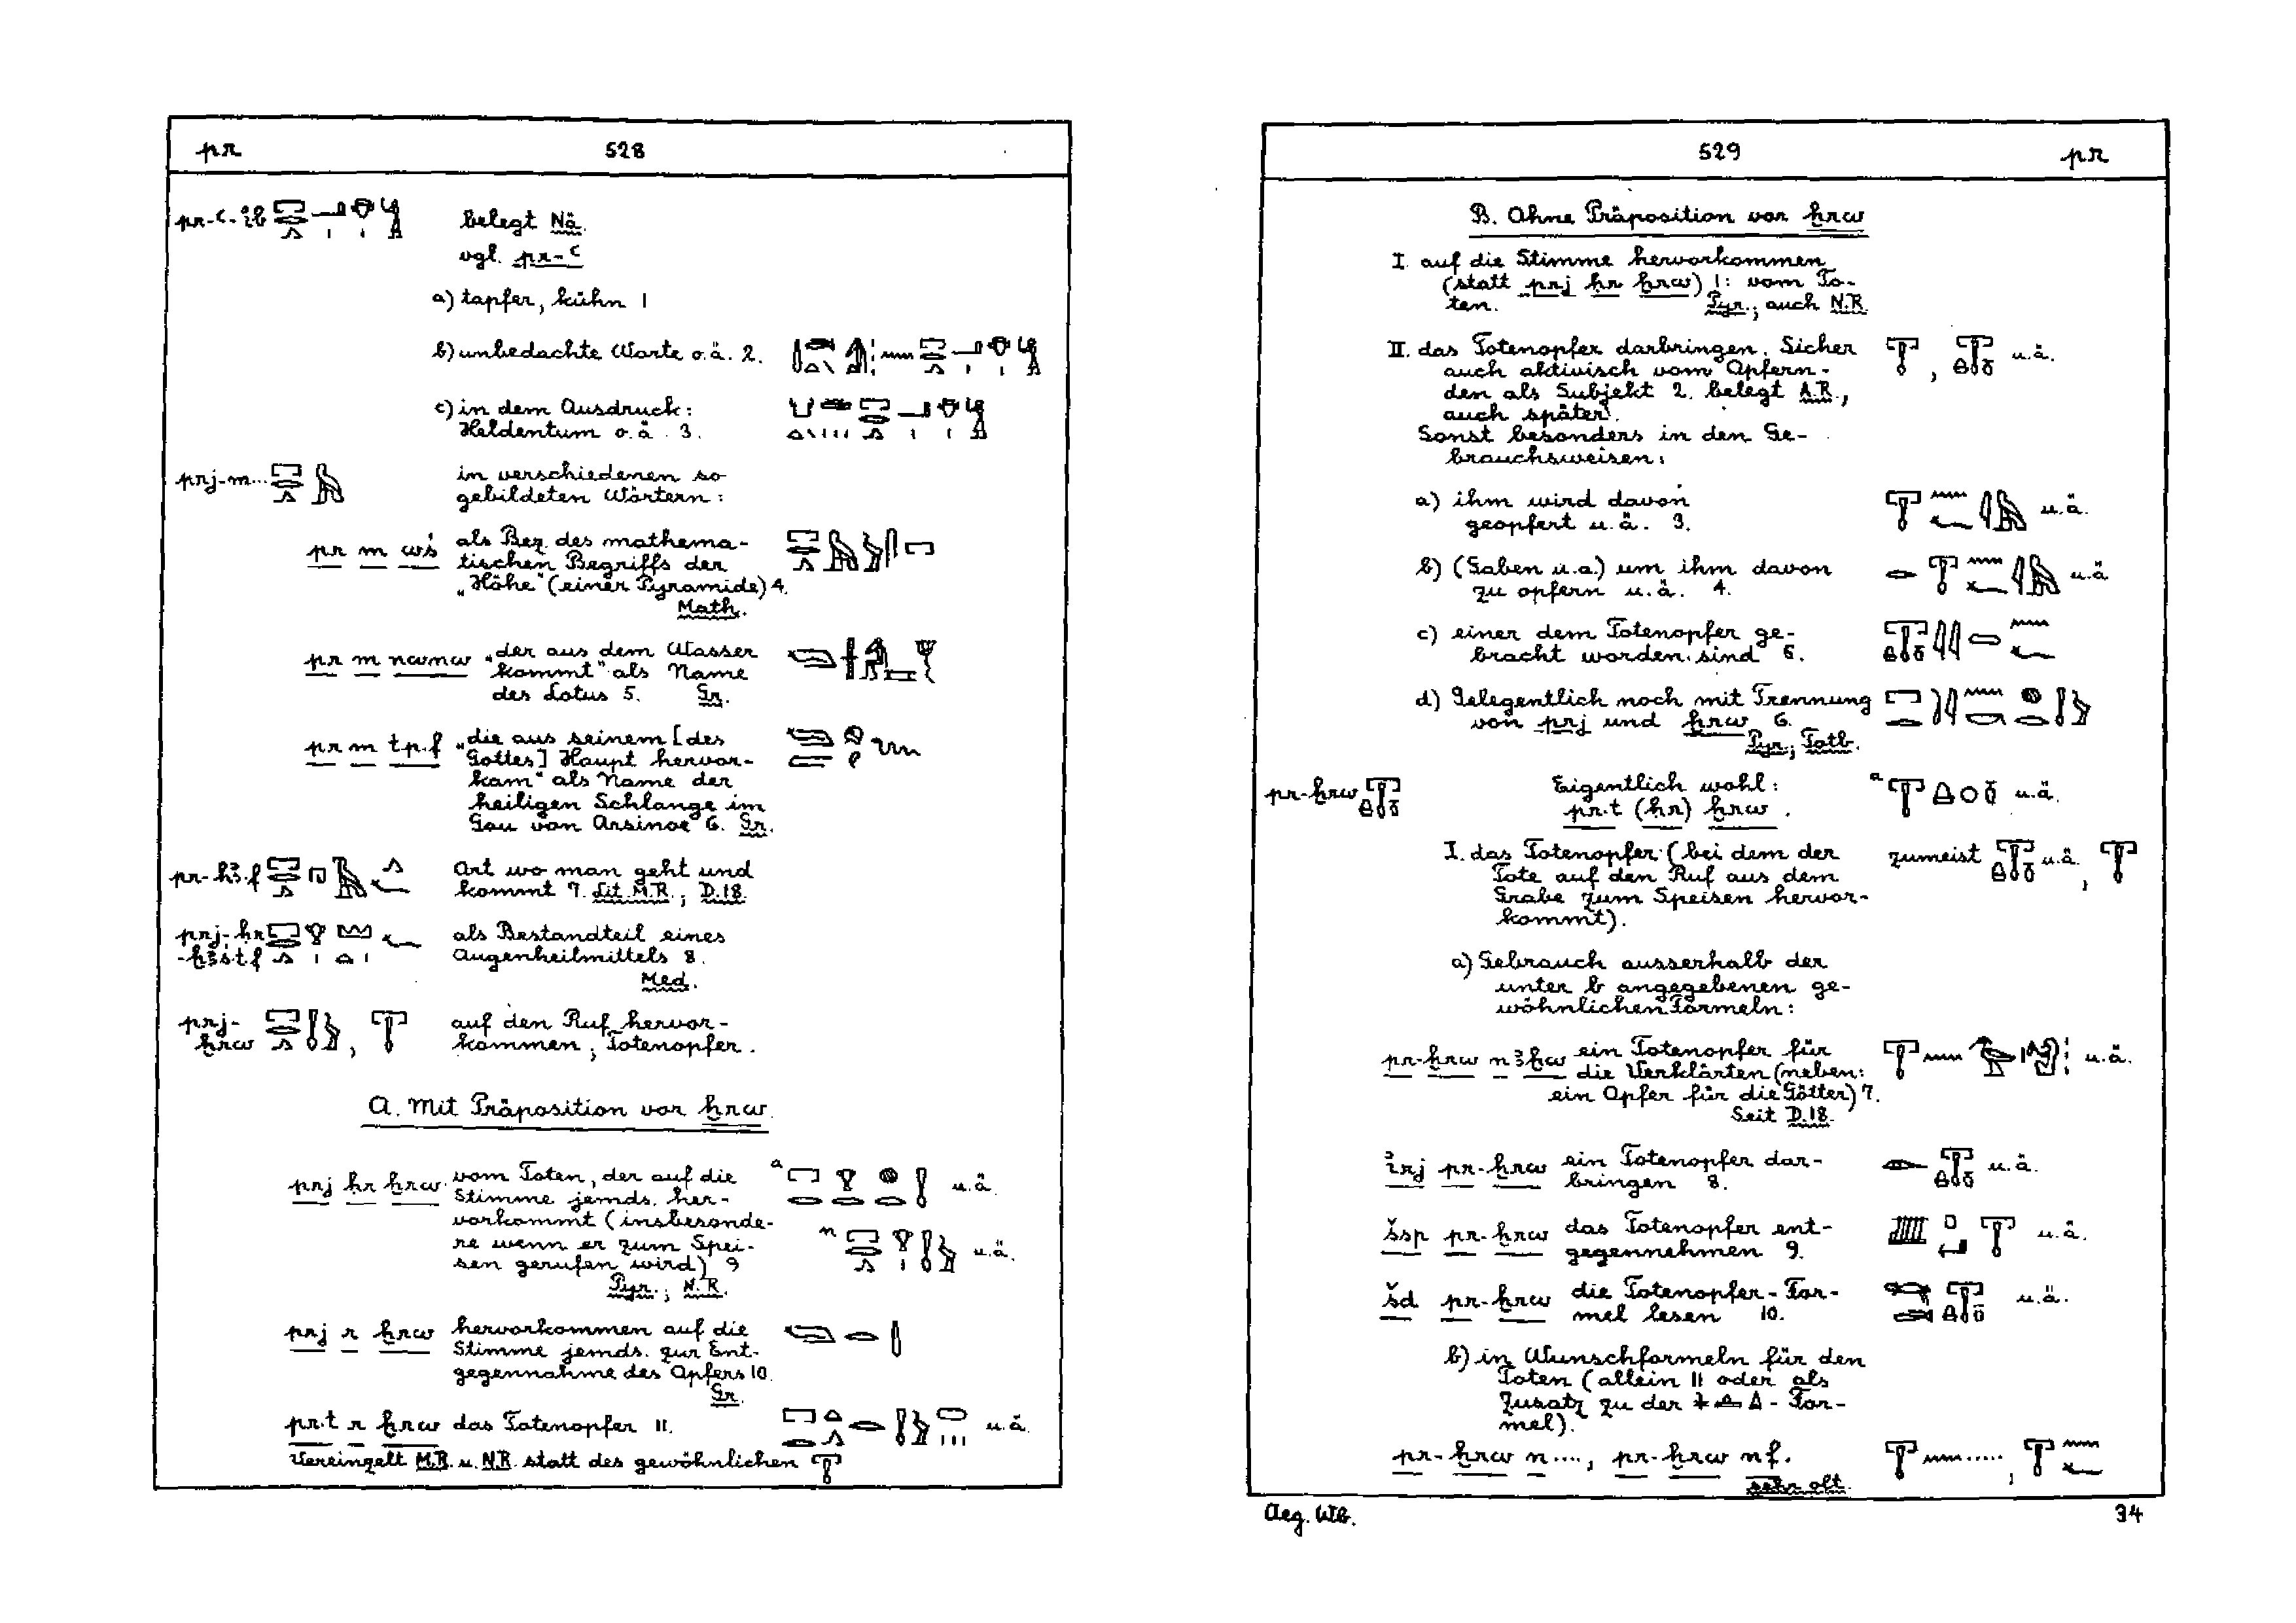 pr 528
pr-ꜥ-ib belegt Nä.
vgl. pr-ꜥ
a) tapfer, kühn 1
b) unbedachte Worte o.ä. 2.
c) in dem Ausdruck:
Heldentum o.ä. 3.
prj-m... in verschiedenen so
gebildeten Wörtern:
pr m wś als Bez. des mathema-
tischen Begriffs der
„Höhe" (einer Pyramide) 4.
Math.
pr m nwnw „der aus dem Wasser
kommt" als Name
des Lotus 5. Gr.
pr m tp.f „die aus seinem [des
Gottes] Haupt hervor-
kam" als Name der
heiligen Schlange im
Gau von Arsinoe 6. Gr.
pr-hꜣ.f Ort wo man geht und
kommt 7. Lit. M.R.; D.18.
prj-ḥr als Bestandteil eines
Augenheilmittels 8.
Med.
prj- auf den Ruf hervor-
ḫrw kommen, Totenopfer.
A. Mit Präposition vor ḫrw.
prj ḥr ḫrw vom Toten, der auf die a u.ä.
Stimme jemds. her-
vorkommt (insbesonde-
re wenn er zum Spei- n u.ä.
sen gerufen wird) 9
Pyr.; N.R.
prj r ḫrw hervorkommen auf die
Stimme jemds. zur Ent-
gegennahme des Opfers 10.
Gr.
pr.t r ḫrw das Totenopfer 11. u.ä.
Vereinzelt M.R. u. N.R. statt des gewöhnlichen
529 pr
B. Ohne Präposition vor ḫrw
I. auf die Stimme hervorkommen
(statt prj ḥr ḫrw) 1: vom To-
ten. Pyr.; auch N.R.
II. das Totenopfer darbringen. Sicher , u.ä.
auch aktivisch vom Opfern-
den als Subjekt 2. belegt A.R.,
auch später.
Sonst besonders in den Ge-
brauchsweisen:
a) ihm wird davon u.ä.
geopfert u.ä. 3.
b) (Gaben u.a.) um ihm davon u.ä
zu opfern u.ä. 4.
c) einer dem Totenopfer ge-
bracht worden sind 5.
d) Gelegentlich noch mit Trennung
von prj und ḫrw 6.
Pyr.; Totb.
pr-ḫrw Eigentlich wohl: a u.ä.
pr.t (ḥr) ḫrw.
I. das Totenopfer (bei dem der zumeist u.ä. ,
Tote auf den Ruf aus dem
Grabe zum Speisen hervor-
kommt).
a) Gebrauch ausserhalb der
unter b angegebenen ge-
wöhnlichen Formeln:
pr-ḫrw n ꜣḫw ein Totenopfer für u.ä.
die Verklärten (neben:
ein Opfer für die Götter) 7.
Seit D.18.
irj pr-ḫrw ein Totenopfer dar- u.ä.
bringen 8.
šsp pr-ḫrw das Totenopfer ent- u.ä.
gegennehmen 9.
šd pr-ḫrw die Totenopfer-For- u.ä.
mel lesen 10.
b) in Wunschformeln für den
Toten (allein 11 oder als
Zusatz zu der - For-
mel).
pr-ḫrw n...., pr-ḫrw nf. ..... ,
sehr oft.
Aeg. Wb. 34